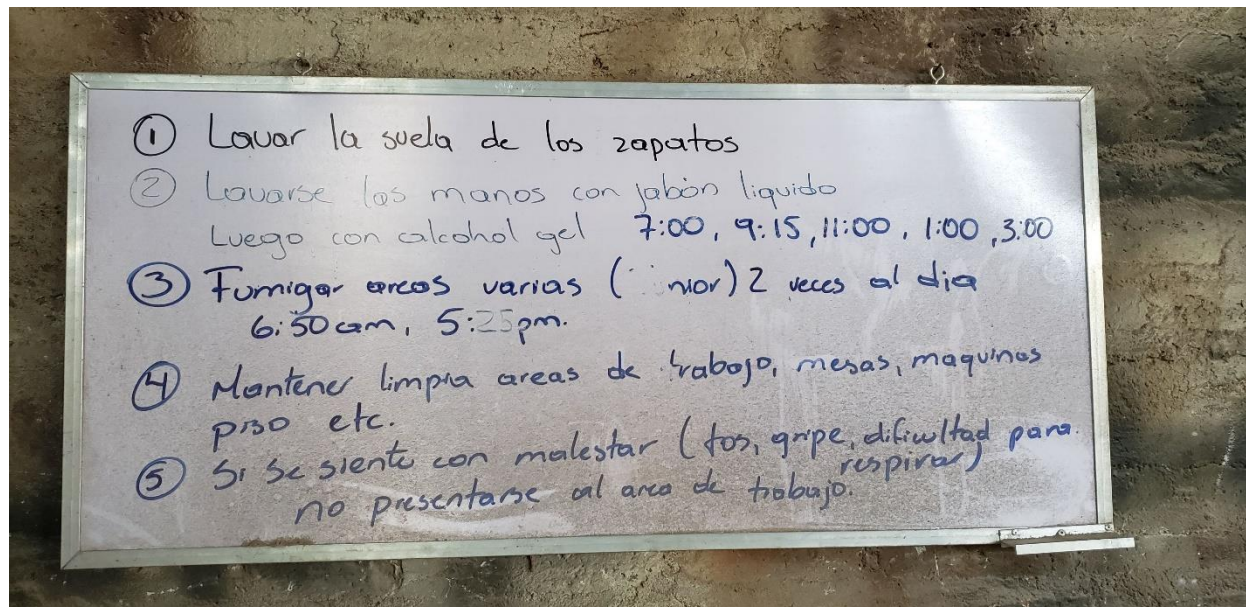 ① Lavar la suela de los zapatos
② Lavarse las manos con jabón liquido
Luego con alcohol gel 7:00, 9:15, 11:00, 1:00, 3:00
③ Fumigar areas varias ( ) 2 veces al dia
6:50 am, 5:25 pm.
④ Mantener limpia areas de trabajo, mesas, maquinas
piso etc.
⑤ Si se siente con malestar (tos, gripe, dificultad para
respirar)
no presentarse al area de trabajo.